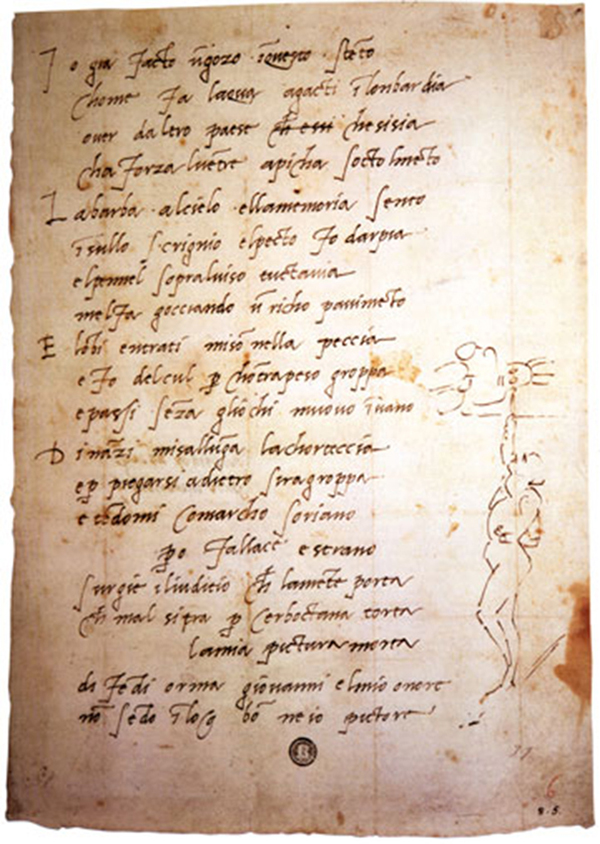 I o gia facto ūgozo īquesto stēto
chome fa laqua agacti ī lonbardia
over daltro paese ch̄ essi chesisia
cha forza luētre apicha socto lmēto
L abarba alcielo ellamemoria sento
īsullo scrignio elpecto fo darpia
elpennel sopraluiso cuctavia
melfa gocciando ū richo pavimēto
E lōbi entrati misō nella peccia
e fo delcul p̱ chōtrapeso groppa
epassi sēza gliochi muovo īvano
D ināzi misallūga lachorteccia
ep̱ piegarsi adietro siragroppa
e tēdomi comarcho soriano
p̱o fallace estrano
surgie īliuditio ch̄ lamēte porta
ch̄ mal sitra p̱ cerboctana torta
lamia pictura morta
difedi orma giovanni elmio onore
nō sēdo īloco bō neio pictore
6
8.5